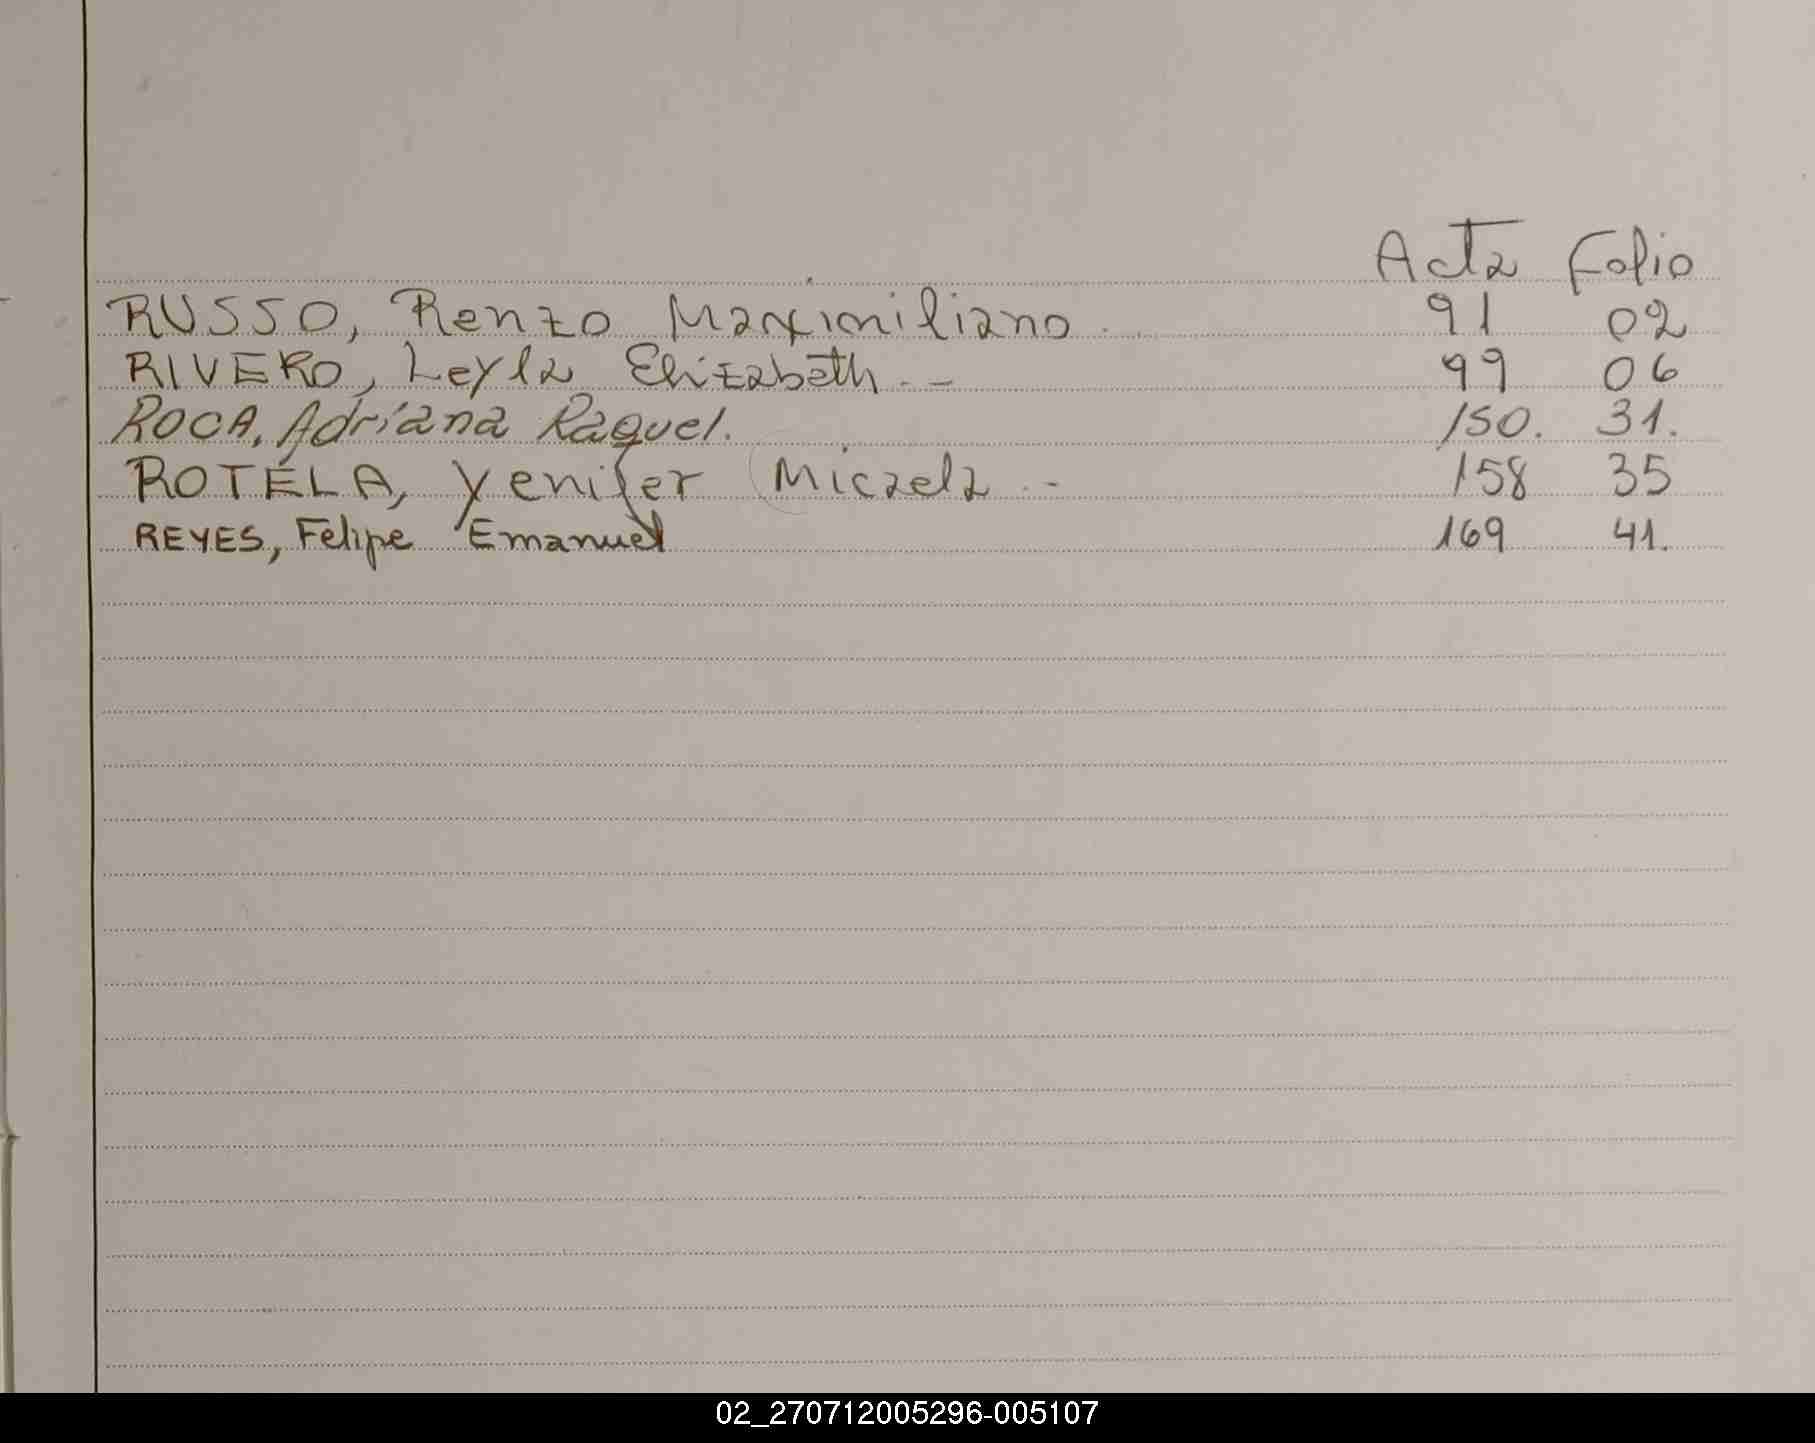 Acta Folio
RUSSO, Renzo Maximiliano. 91 02
RIVERO, Leyla Elizabeth.-- 99 06
ROCA, Adriana Raquel. 150. 31.
ROTELA, Yenifer Micaela .- 158 35
REYES, Felipe Emanuel 169 41.
02_270712005296-005107